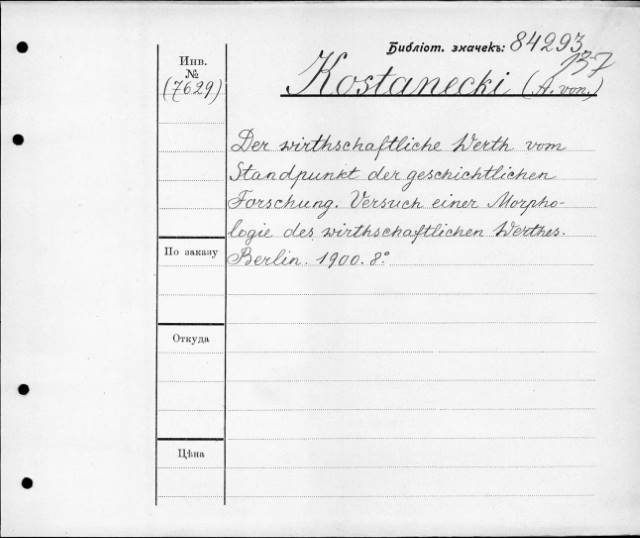 Библіот. значекъ: 84293
137
Инв.
№
(7629)
Kostanecki (A. von.)
Der wirthschaftliche Werth vom
Standpunkt der geschichtlichen
Forschung. Versuch einer Morpho-
logie des wirthschaftlichen Werthes.
Berlin. 1900. 8.°
По заказу
Откуда
Цѣна